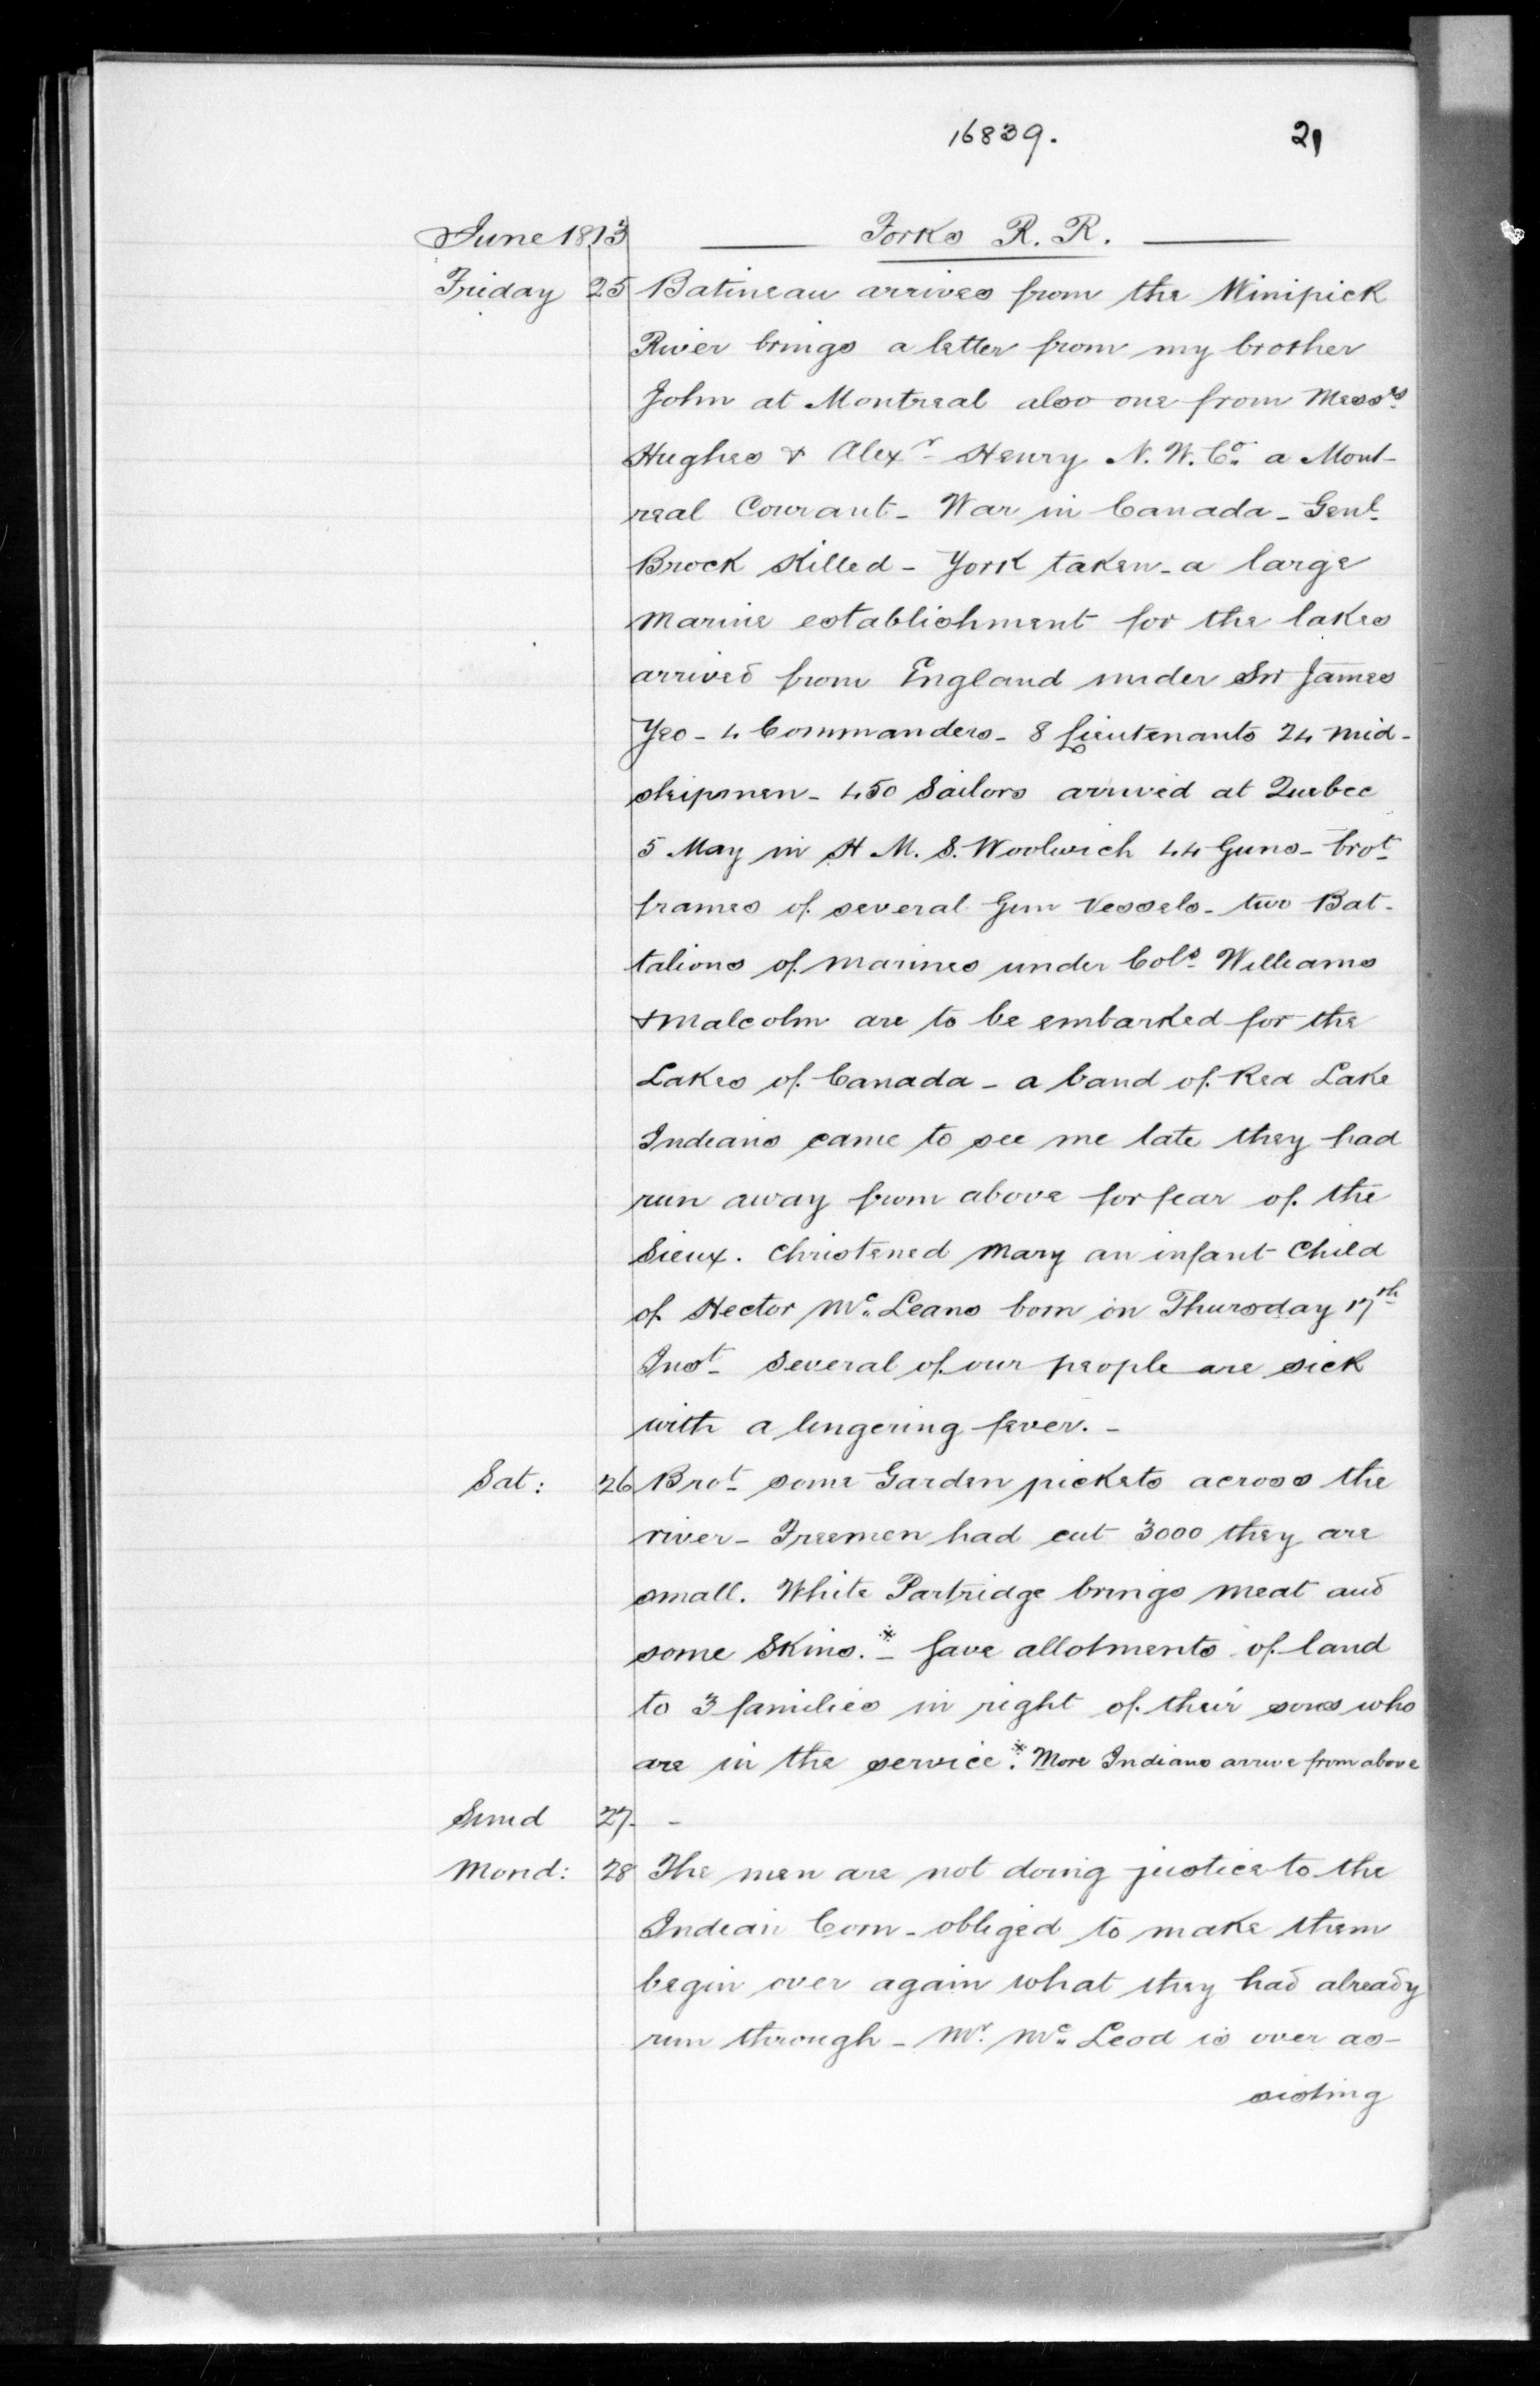 16839. 21
June 1813 Forks R. R.
Friday 25 Batineau arrives from the Winipick
River brings a letter from my brother
John at Montreal also one from Messrs
Hughes & Alexr Henry N. W. Co. a Mont-
real Courant - War in Canada - Genl
Brock killed - York taken - a large
marine establishment for the lakes
arrived from England under Sir James
Yeo - 4 Commanders - 8 Lieutenants 24 mid-
shipmen - 450 Sailors arrived at Quebec
5 May in H M. S. Woolwich 44 Guns - brot
frames of several Gun Vessels - two Bat-
talions of marines under Cols Williams
& Malcolm are to be embarked for the
Lakes of Canada - a band of Red Lake
Indians came to see me late they had
run away from above for fear of the
Sieux. Christened Mary an infant Child
of Hector Mc Leans born on Thursday 17th
Inst - Several of our people are sick
with a lingering fever. -
Sat: 26 Brot some Garden pickets across the
river - Freemen had cut 3000 they are
small. White Partridge brings meat and
some Skins.* - gave allotments of land
to 3 families in right of their sons who
are in the service.* More Indians arrive from above
Sund 27 - -
Mond: 28 The men are not doing justice to the
Indian Corn - obliged to make them
begin over again what they had already
run through - Mr. Mc Leod is over as-
sisting